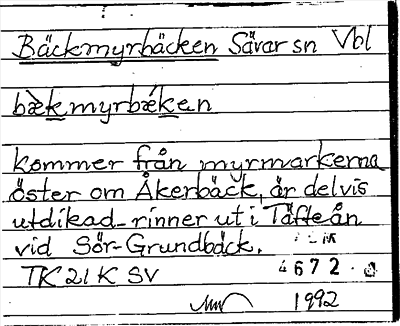 Bäckmyrbäcken Sävar sn Vbl
bæ̀kmyrbǽken
kommer från myrmarkerna
öster om Åkerbäck, är delvis
utdikad - rinner ut i Täfteån
vid Sör-Grundbäck.
TK 21 K SV
4672
1992